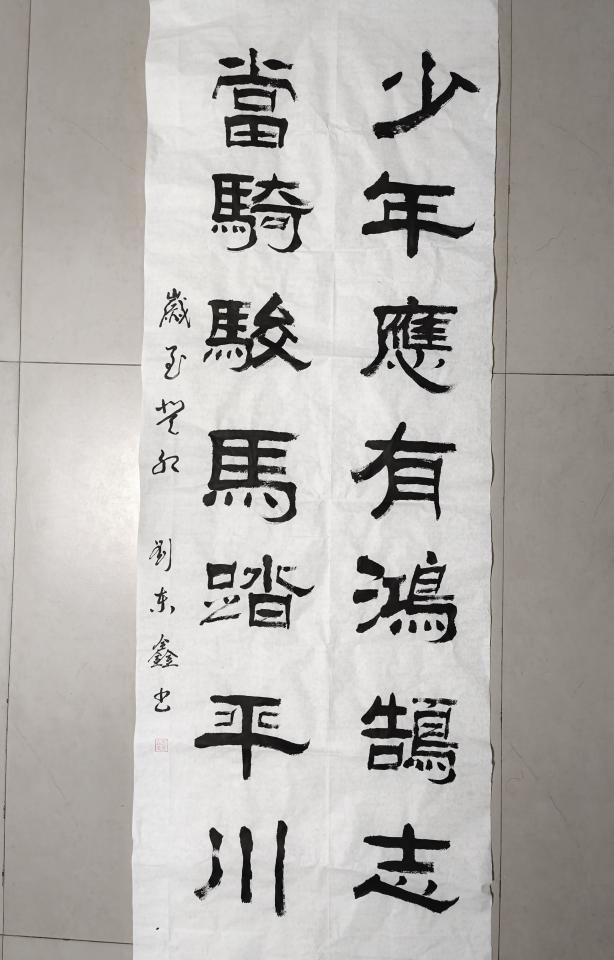 少年應有鴻鵠志
當騎駿馬踏平川
歲至癸卯 劉東鑫书